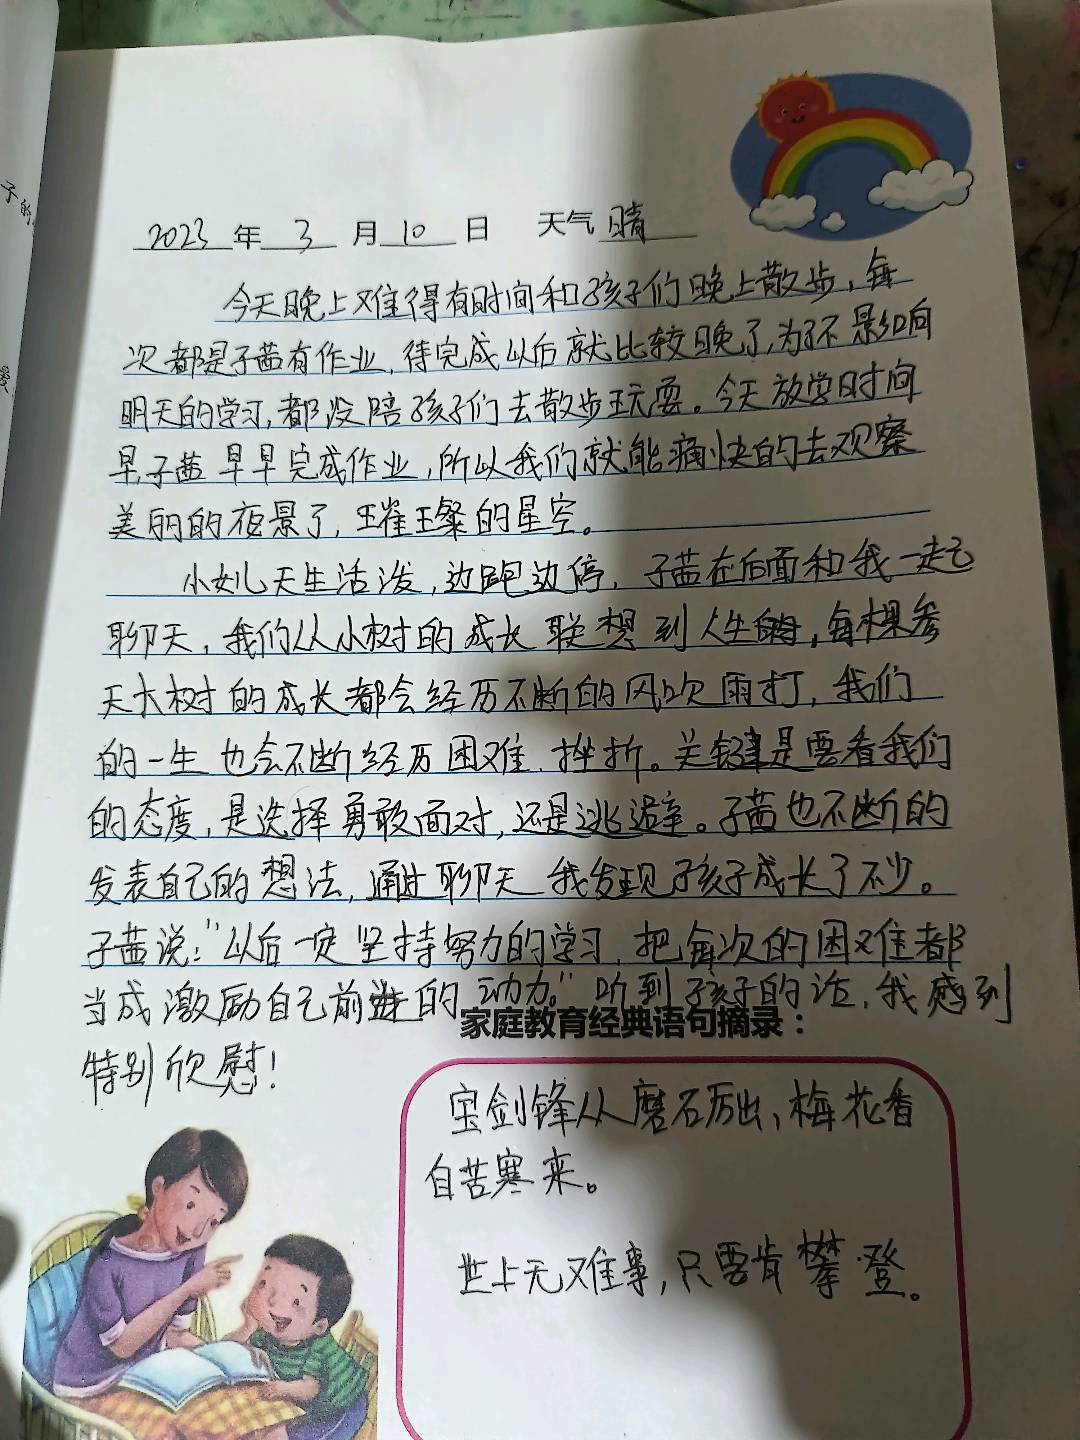 2023年 3 月 10 日 天气 晴
今天晚上难得有时间和孩子们晚上散步,每
次都是子茜有作业,待完成以后就比较晚了,为了不影响
明天的学习,都没陪孩子们去散步玩耍。今天放学时间
早,子茜早早完成作业,所以我们就能痛快的去观察
美丽的夜景了,璀璨的星空。
小妞儿天生活泼,边跑边停,子茜在后面和我一起
聊天,我们从小树的成长联想到人生,每棵参
天大树的成长都会经历不断的风吹雨打,我们
的一生也会不断经历困难、挫折。关键是要看我们
的态度,是选择勇敢面对,还是逃避。子茜也不断的
发表自己的想法,通过聊天我发现孩子成长了不少。
子茜说:“以后一定坚持努力的学习,把每次的困难都
当成激励自己前进的动力。”听到孩子的话,我感到
特别欣慰!
家庭教育经典语句摘录:
宝剑锋从磨石厉出,梅花香
自苦寒来。
世上无难事,只要肯攀登。